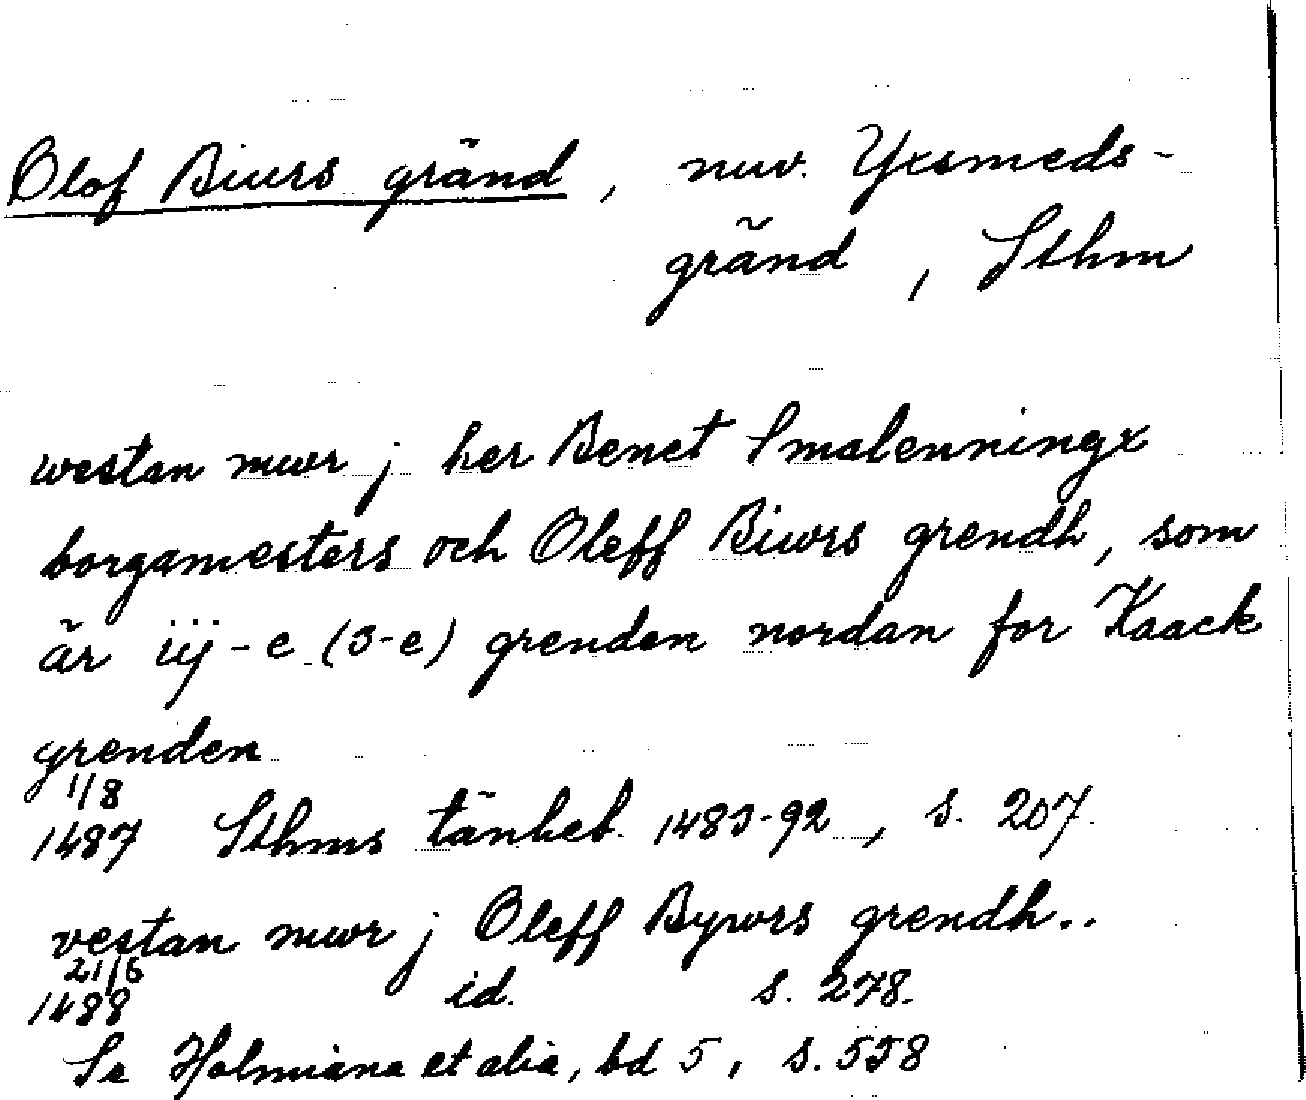 Olof Biurs gränd, nuv. Yxsmeds-
gränd, Sthm
westan mwr j her Benct Smalenningx
borgamesters och Oleff Biwrs grendh, som
är iij-e (3-e) grenden nordan for Kaack
grenden
1/8
1487 Sthms tänkeb. 1483-92, s. 207.
vestan mwr j Oleff Bywrs grendh..
21/6
1488 id. s. 278.
Se Holmiana et alia, bd 5, s. 558